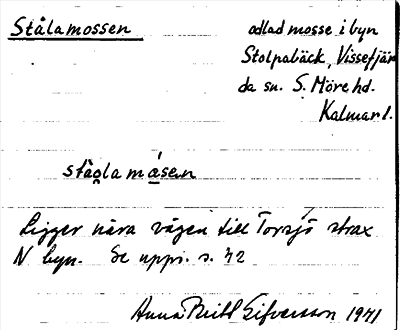 Stålamossen
odlad mosse i byn
Stolpabäck, Vissefjär
da sn. S. Möre hd.
Kalmar l.
stågla måsen
Ligger nära vägen till Torsjö strax
N byn. Se upps. s. 42
Anna Britt Sifversson 1941